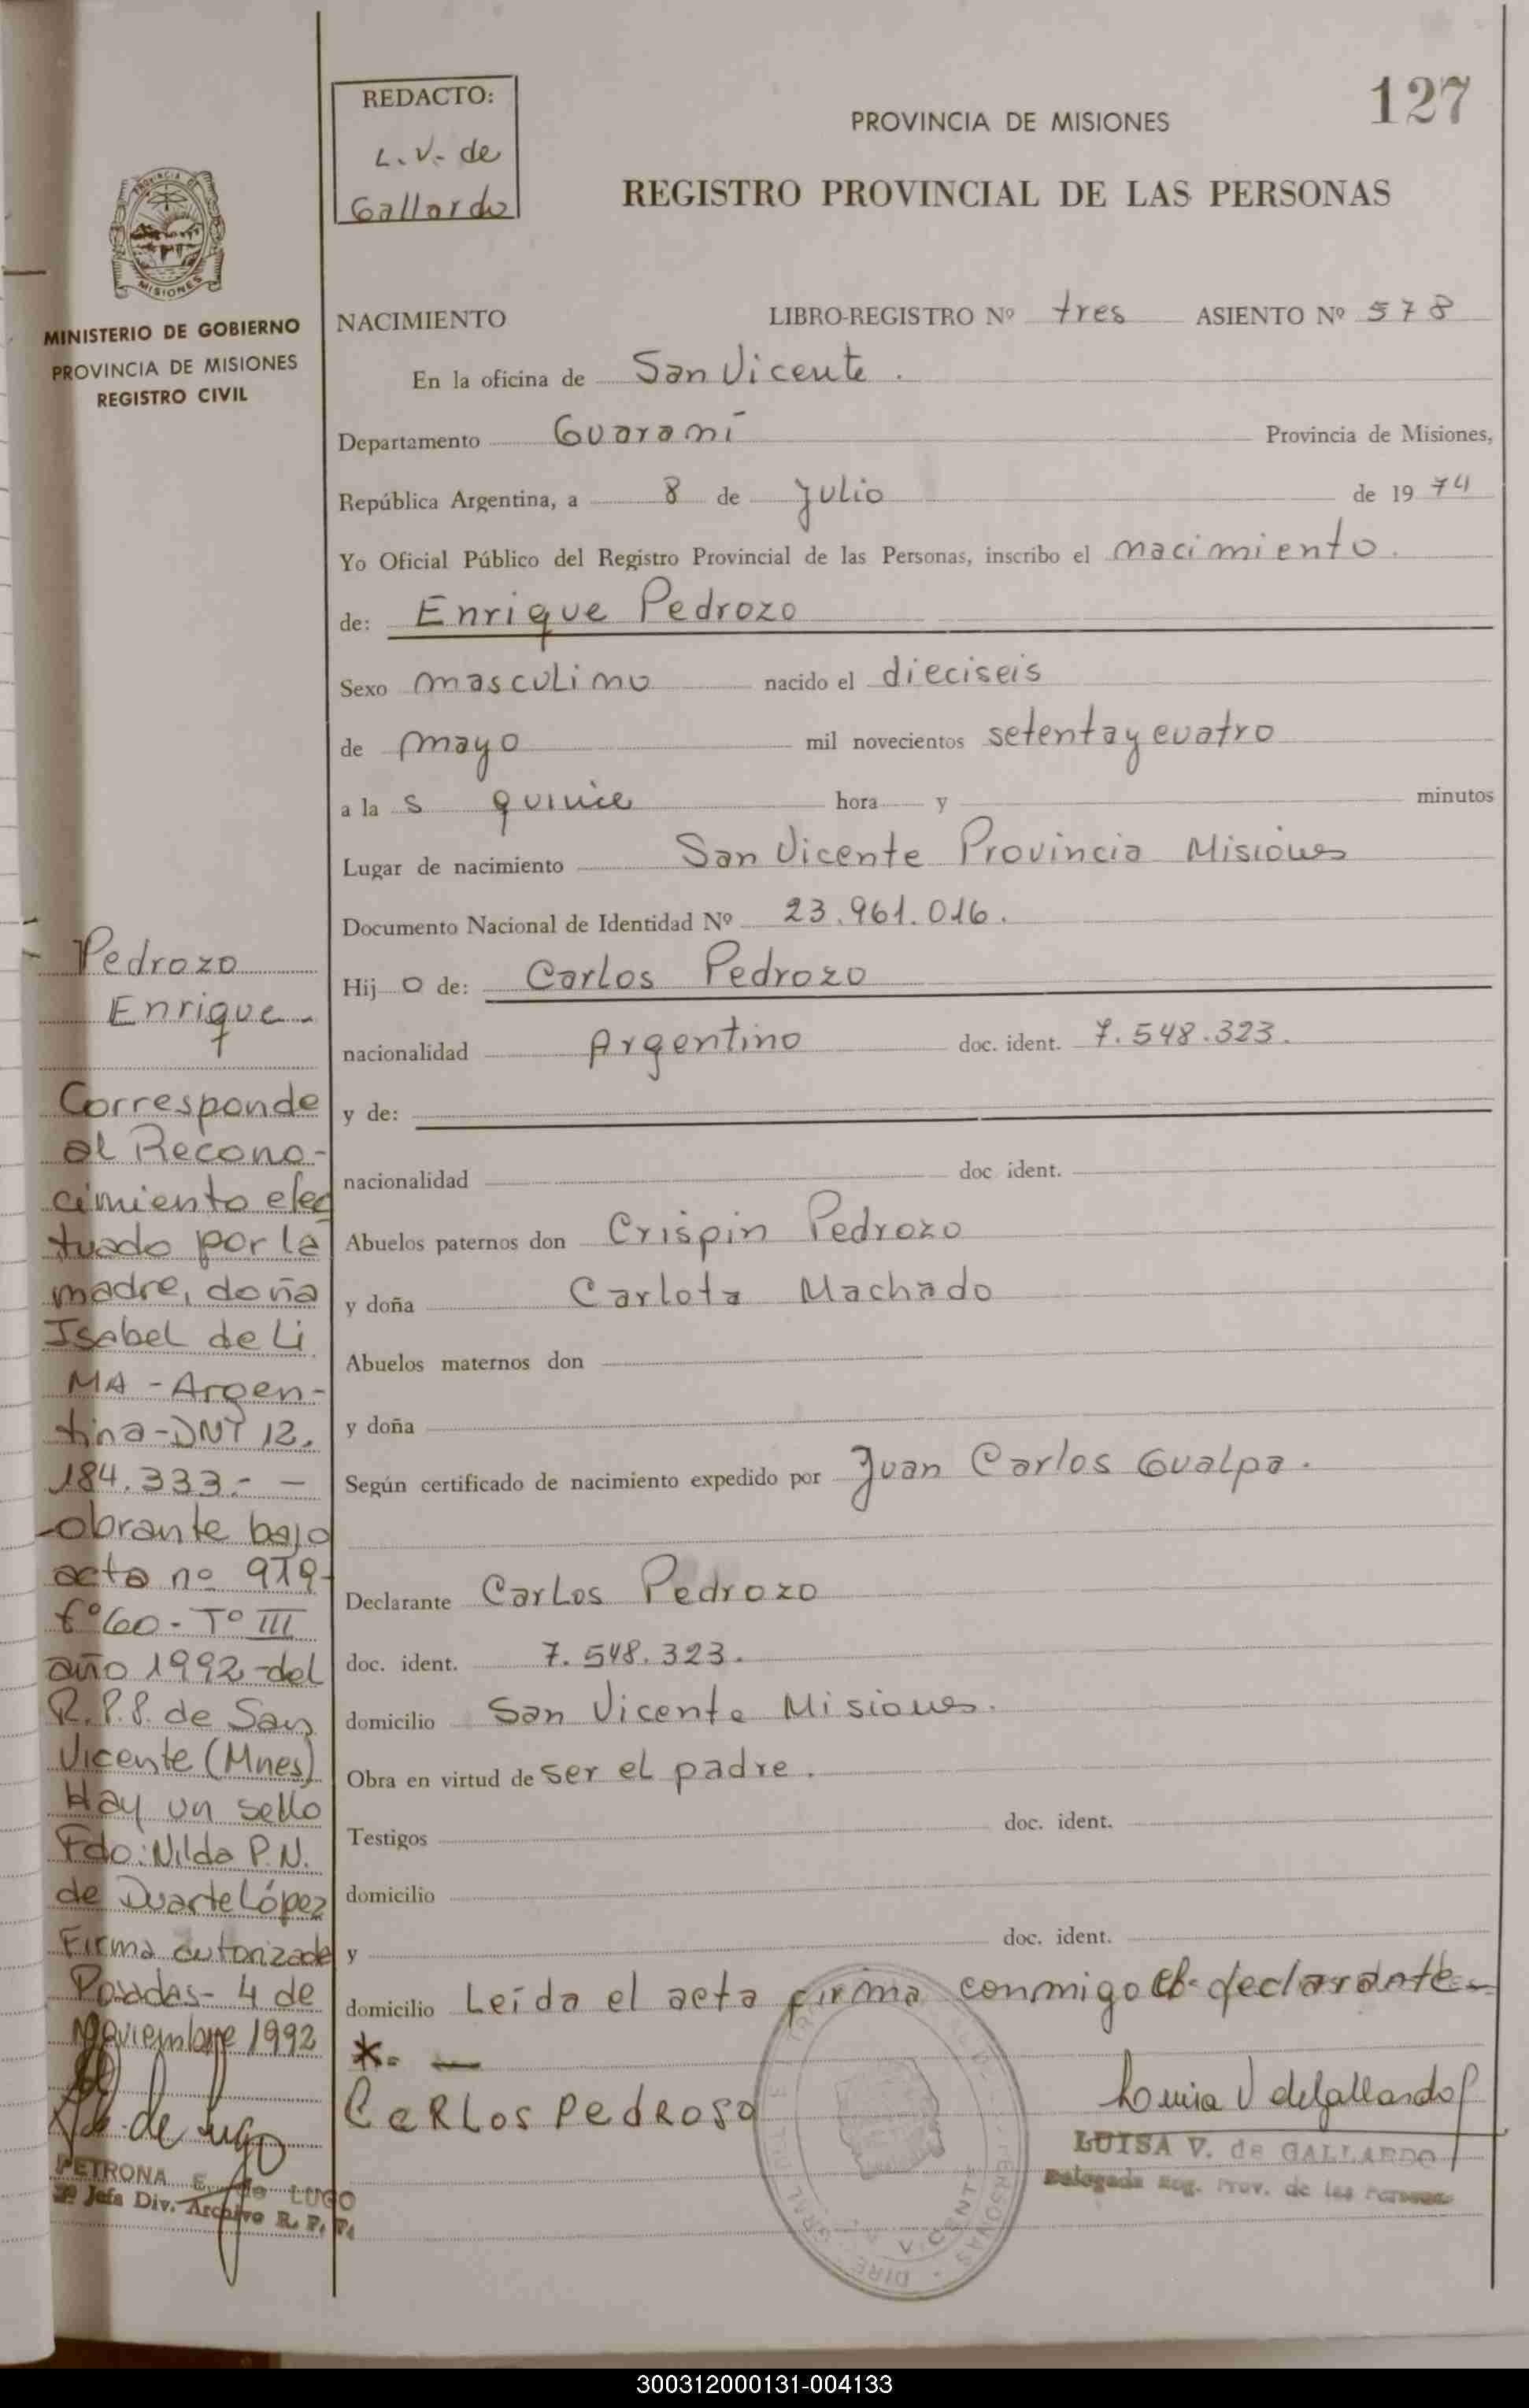 127
REDACTO:
L. V. de
Gallardo
PROVINCIA DE MISIONES
REGISTRO PROVINCIAL DE LAS PERSONAS
PROVINCIA DE
MISIONES
MINISTERIO DE GOBIERNO
PROVINCIA DE MISIONES
REGISTRO CIVIL
NACIMIENTO LIBRO-REGISTRO Nº tres ASIENTO Nº 578
En la oficina de San Vicente.
Departamento Guaraní Provincia de Misiones,
República Argentina, a 8 de Julio de 1974
Yo Oficial Público del Registro Provincial de las Personas, inscribo el nacimiento.
de: Enrique Pedrozo
Sexo masculino nacido el dieciseis
de mayo mil novecientos setenta y cuatro
a la s quince hora y minutos
Lugar de nacimiento San Vicente Provincia Misiones
Documento Nacional de Identidad Nº 23.961.016.
Hij o de: Carlos Pedrozo
nacionalidad Argentino doc. ident. 7.548.323.
y de:
nacionalidad doc ident.
Abuelos paternos don Crispin Pedrozo
y doña Carlota Machado
Abuelos maternos don
y doña
Según certificado de nacimiento expedido por Juan Carlos Gualpa.
Declarante Carlos Pedrozo
doc. ident. 7.548.323.
domicilio San Vicente Misiones.
Obra en virtud de ser el padre.
Testigos doc. ident.
domicilio
y doc. ident.
domicilio Leída el acta firma conmigo el declarante
*. —
CaRLos PedRoso
Luisa V de Gallardo
LUISA V. de GALLARDO
Delegada Reg. Prov. de las Personas
Pedrozo
Enrique.
Corresponde
al Recono-
cimiento efec
tuado por la
madre, doña
Isabel de Li
MA - Argen-
tina - DNI 12.
184.333.- —
obrante bajo
acta nº 979-
fº 60 - Tº III
año 1992 - del
R.P.P. de San
Vicente (Mnes)
Hay un sello
Fdo: Nilda P.N.
de Duarte López
Firma autorizada
Posadas - 4 de
Noviembre 1992
de Lugo
PETRONA E. de LUGO
Jefa Div. Archivo R. P. P.
300312000131-004133